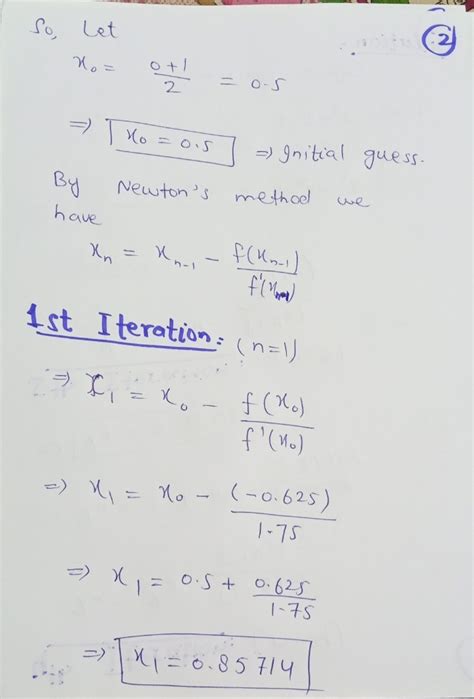 So, Let
2
x₀ = (0+1)/2 = 0.5
⇒ x₀ = 0.5 ⇒ Initial guess.
By Newton's method we
have
xₙ = xₙ₋₁ - f(xₙ₋₁)/f'(xₙ₋₁)
1st Iteration: (n=1)
⇒ x₁ = x₀ - f(x₀)/f'(x₀)
⇒ x₁ = x₀ - (-0.625)/1.75
⇒ x₁ = 0.5 + 0.625/1.75
⇒ x₁ = 0.85714